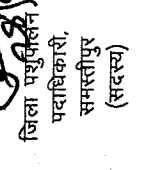 जिला पशुपालन
पदाधिकारी,
समस्तीपुर
(सदस्य)